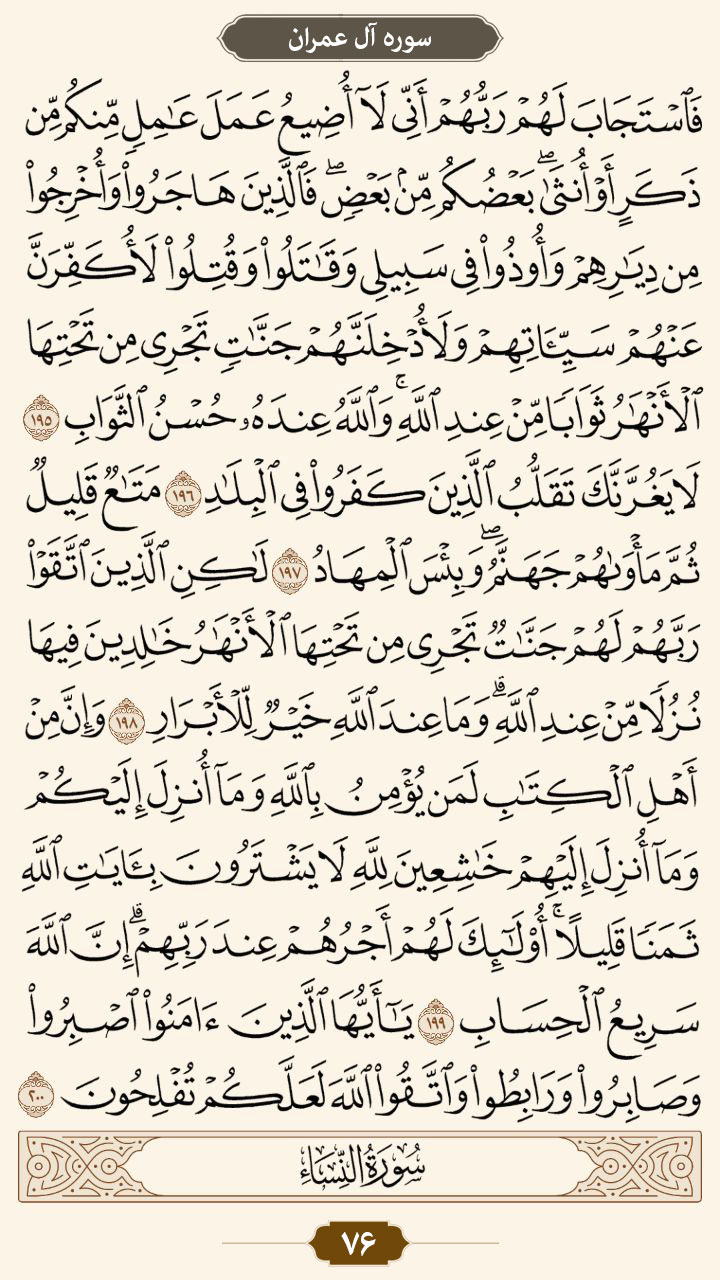 سوره آل عمران
فَٱسۡتَجَابَ لَهُمۡ رَبُّهُمۡ أَنِّي لَآ أُضِيعُ عَمَلَ عَٰمِلٖ مِّنكُم مِّن
ذَكَرٍ أَوۡ أُنثَىٰۖ بَعۡضُكُم مِّنۢ بَعۡضٖۖ فَٱلَّذِينَ هَاجَرُواْ وَأُخۡرِجُواْ
مِن دِيَٰرِهِمۡ وَأُوذُواْ فِي سَبِيلِي وَقَٰتَلُواْ وَقُتِلُواْ لَأُكَفِّرَنَّ
عَنۡهُمۡ سَيِّـَٔاتِهِمۡ وَلَأُدۡخِلَنَّهُمۡ جَنَّٰتٖ تَجۡرِي مِن تَحۡتِهَا
ٱلۡأَنۡهَٰرُ ثَوَابٗا مِّنۡ عِندِ ٱللَّهِۚ وَٱللَّهُ عِندَهُۥ حُسۡنُ ٱلثَّوَابِ ١٩٥
لَا يَغُرَّنَّكَ تَقَلُّبُ ٱلَّذِينَ كَفَرُواْ فِي ٱلۡبِلَٰدِ ١٩٦ مَتَٰعٞ قَلِيلٞ
ثُمَّ مَأۡوَىٰهُمۡ جَهَنَّمُۖ وَبِئۡسَ ٱلۡمِهَادُ ١٩٧ لَٰكِنِ ٱلَّذِينَ ٱتَّقَوۡاْ
رَبَّهُمۡ لَهُمۡ جَنَّٰتٞ تَجۡرِي مِن تَحۡتِهَا ٱلۡأَنۡهَٰرُ خَٰلِدِينَ فِيهَا
نُزُلٗا مِّنۡ عِندِ ٱللَّهِۗ وَمَا عِندَ ٱللَّهِ خَيۡرٞ لِّلۡأَبۡرَارِ ١٩٨ وَإِنَّ مِنۡ
أَهۡلِ ٱلۡكِتَٰبِ لَمَن يُؤۡمِنُ بِٱللَّهِ وَمَآ أُنزِلَ إِلَيۡكُمۡ
وَمَآ أُنزِلَ إِلَيۡهِمۡ خَٰشِعِينَ لِلَّهِ لَا يَشۡتَرُونَ بِـَٔايَٰتِ ٱللَّهِ
ثَمَنٗا قَلِيلًاۚ أُوْلَٰٓئِكَ لَهُمۡ أَجۡرُهُمۡ عِندَ رَبِّهِمۡۗ إِنَّ ٱللَّهَ
سَرِيعُ ٱلۡحِسَابِ ١٩٩ يَٰٓأَيُّهَا ٱلَّذِينَ ءَامَنُواْ ٱصۡبِرُواْ
وَصَابِرُواْ وَرَابِطُواْ وَٱتَّقُواْ ٱللَّهَ لَعَلَّكُمۡ تُفۡلِحُونَ ٢٠٠
سُورَةُ النِّسَاءِ
۷۶